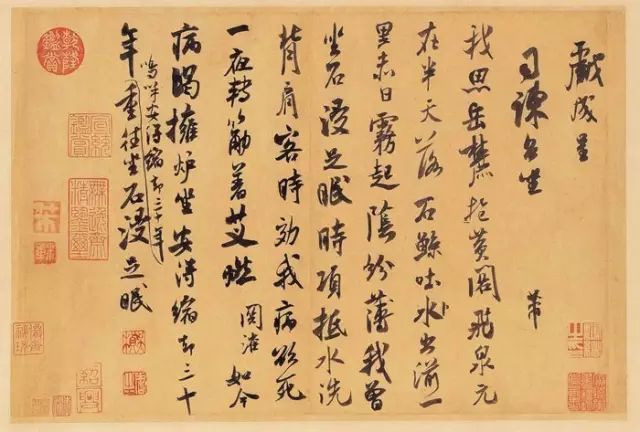 戲成呈
司諫台坐
芾
我思岳麓抱黃閣飛泉元
在半天落石鯨吐水出湔一
里赤日霧起陰紛薄我曾
坐石浸足眠時項抵水洗
背肩客時効我病欲死
一夜轉筋著艾燃關灌如今
病渴擁爐坐安得縮却三十
嗚呼安得縮却三十年
年重往坐石浸足眠
乾隆鑑賞
紹興